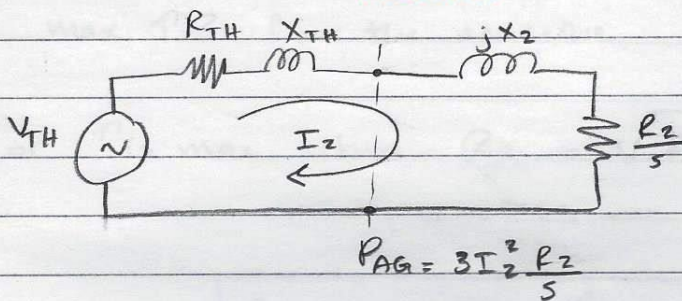 R_TH X_TH jX_2
V_TH ~ I_2 R_2/s
P_AG = 3I_2^2 R_2/s